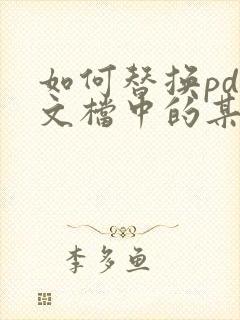 如何替换pd
文檔中的某
李多鱼